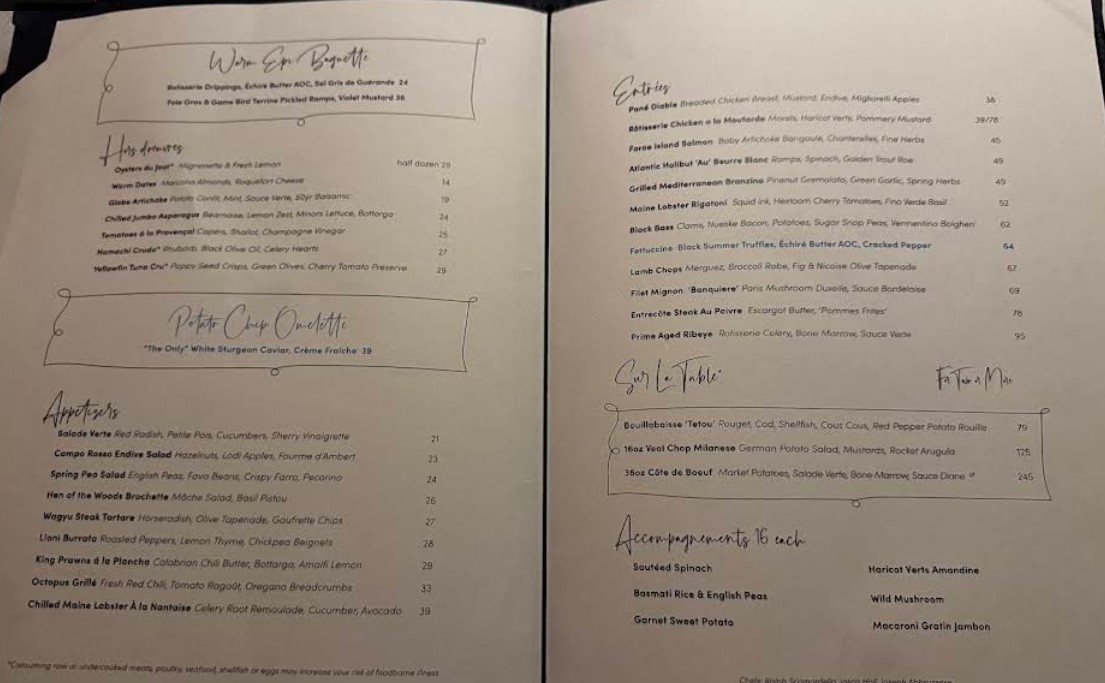 Warm Epi Baguette
Rotisserie Drippings, Échiré Butter AOC, Sel Gris de Guérande 24
Foie Gras & Game Bird Terrine Pickled Ramps, Violet Mustard 36
Hors d'œuvres
Oysters du Jour* Mignonette & Fresh Lemon half dozen 29
Warm Dates Marcona Almonds, Roquefort Cheese 14
Globe Artichoke Potato Confit, Mint, Sauce Verte, 50yr Balsamic 19
Chilled Jumbo Asparagus Béarnaise, Lemon Zest, Minors Lettuce, Bottarga 24
Tomatoes á la Provençal Capers, Shallot, Champagne Vinegar 25
Hamachi Crudo* Rhubarb, Black Olive Oil, Celery Hearts 27
Yellowfin Tuna Cru* Poppy Seed Crisps, Green Olives, Cherry Tomato Preserve 29
Potato Chip Omelette
"The Only" White Sturgeon Caviar, Crème Fraiche 39
Appetizers
Salade Verte Red Radish, Petite Pois, Cucumbers, Sherry Vinaigrette 21
Campo Rosso Endive Salad Hazelnuts, Lodi Apples, Fourme d'Ambert 23
Spring Pea Salad English Peas, Fava Beans, Crispy Farro, Pecorino 24
Hen of the Woods Brochette Mâche Salad, Basil Pistou 26
Wagyu Steak Tartare Horseradish, Olive Tapenade, Gaufrette Chips 27
Lioni Burrata Roasted Peppers, Lemon Thyme, Chickpea Beignets 28
King Prawns á la Plancha Calabrian Chili Butter, Bottarga, Amalfi Lemon 29
Octopus Grillé Fresh Red Chili, Tomato Ragoût, Oregano Breadcrumbs 33
Chilled Maine Lobster À la Nantaise Celery Root Remoulade, Cucumber, Avocado 39
*Consuming raw or undercooked meats, poultry, seafood, shellfish or eggs may increase your risk of foodborne illness
Entrées
Pané Diable Breaded Chicken Breast, Mustard, Endive, Migliorelli Apples 36
Rôtisserie Chicken a la Moutarde Morels, Haricot Verts, Pommery Mustard 39/78
Faroe Island Salmon Baby Artichoke Barigoule, Chanterelles, Fine Herbs 45
Atlantic Halibut 'Au' Beurre Blanc Ramps, Spinach, Golden Trout Roe 49
Grilled Mediterranean Branzino Pinenut Gremolata, Green Garlic, Spring Herbs 49
Maine Lobster Rigatoni Squid Ink, Heirloom Cherry Tomatoes, Fino Verde Basil 52
Black Bass Clams, Nueske Bacon, Potatoes, Sugar Snap Peas, Vermentino Bolgheri 62
Fettuccine Black Summer Truffles, Échiré Butter AOC, Cracked Pepper 64
Lamb Chops Merguez, Broccoli Rabe, Fig & Nicoise Olive Tapenade 67
Filet Mignon 'Banquiere' Paris Mushroom Duxelle, Sauce Bordelaise 69
Entrecôte Steak Au Poivre Escargot Butter, 'Pommes Frites' 78
Prime Aged Ribeye Rotisserie Celery, Bone Marrow, Sauce Verte 95
Sur La Table* For Two or More
Bouillabaisse 'Tetou' Rouget, Cod, Shellfish, Cous Cous, Red Pepper Potato Rouille 79
16oz Veal Chop Milanese German Potato Salad, Mustards, Rocket Arugula 125
36oz Côte de Boeuf Market Potatoes, Salade Verte, Bone Marrow, Sauce Diane 245
Accompagnements 16 each
Sautéed Spinach Haricot Verts Amandine
Basmati Rice & English Peas Wild Mushroom
Garnet Sweet Potato Macaroni Gratin Jambon